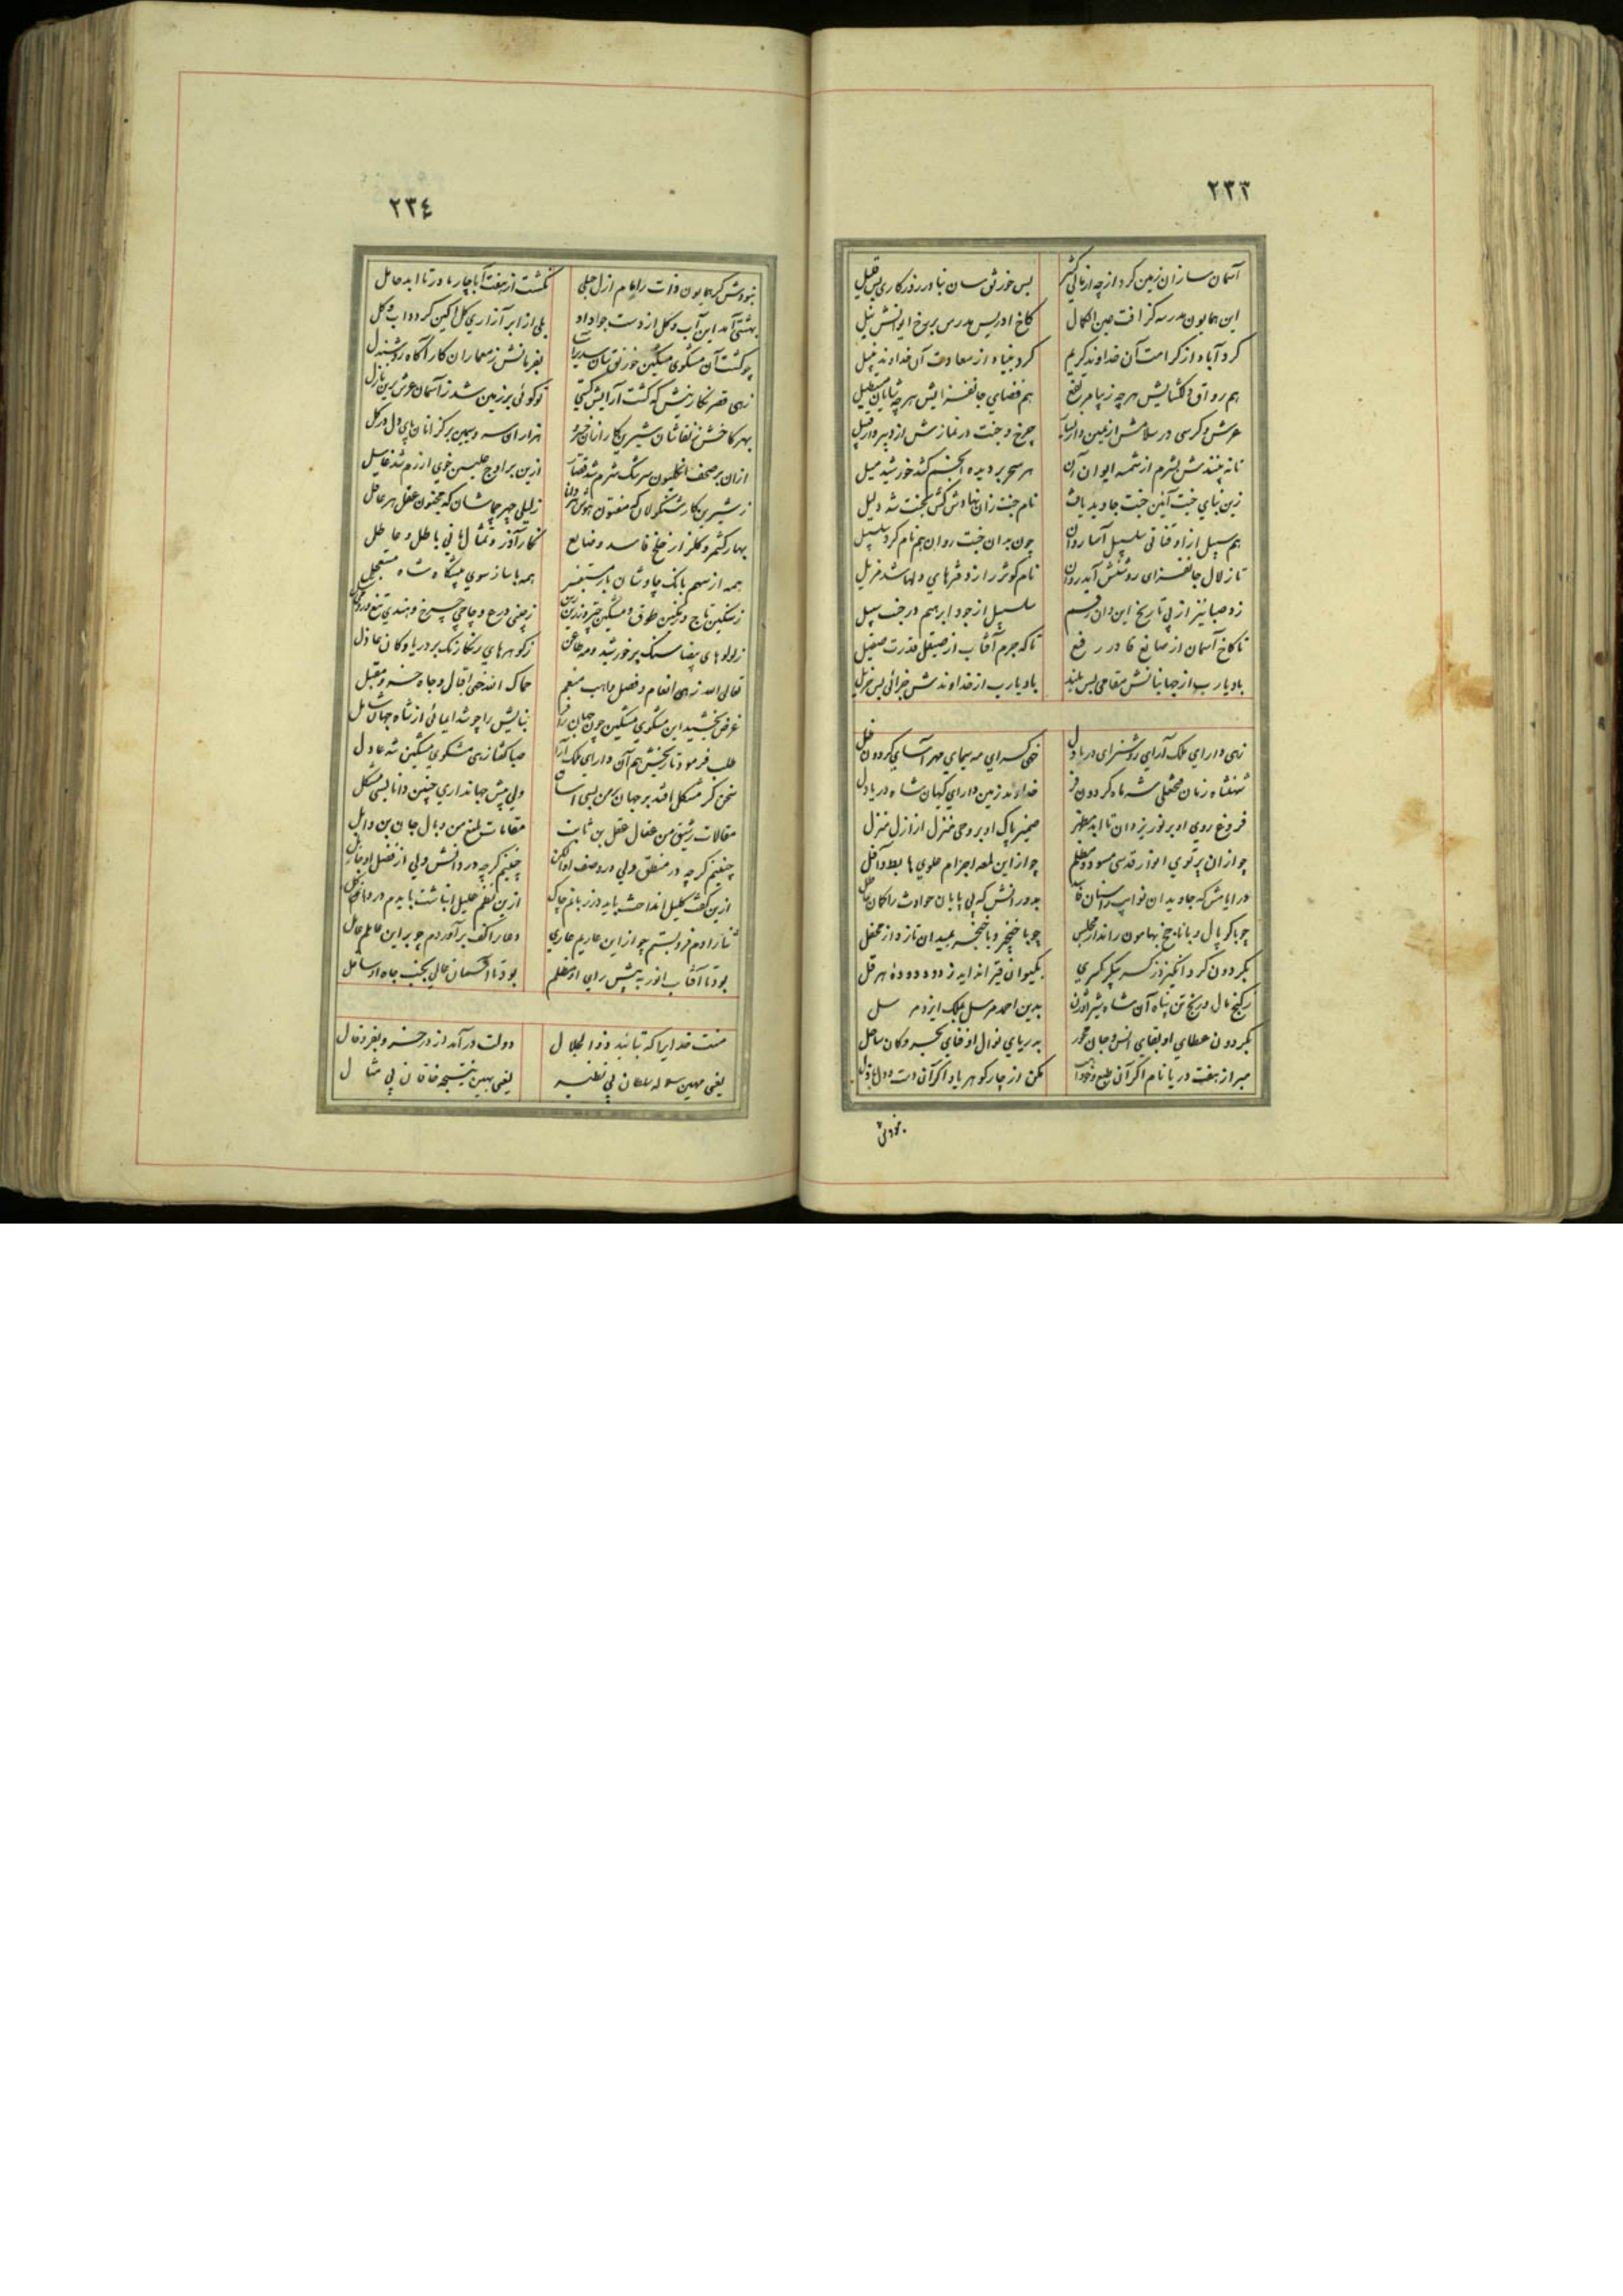 ۲۳۳
آسمان سا زان زمین کرد از چه از مالی کثیر بس خورنق سان بنا در روزکاری بس قلیل
این همایون مدرسه کز آفت عین الکمال کاخ ادریس مدرس بر رخ ایوانش نیل
کرد آباد از کرامت آن خداوند کریم کرد بنیاد از سعادت آن خداوند نبیل
هم رواق دلکشایش هر چه زیبا مرتفع هم فضای جانفزایش هر چه شایان مستطیل
عرش و کرسی در سلامش از یمین و از یسار چرخ و جنت در نمازش از دبیر و از قبیل
تا نه بینندش بشرم از شمسه ایوان آن هر سحر بر دیده انجم کشد خورشید میل
زین بنای جنت آئین جنت جاوید یافت نام جنت زان نهادش کش بجنت شد دلیل
هم سبیل از او قناتی سلسبیل آسا روان چون بدان جنت روان هم نام کرد سلسبیل
تا زلال جانفزای روشنش آید روان نام کوثر را ز دفترهای دلها شد مزیل
زد صبا نیز از پی تاریخ این دان رقم سلسبیل از جود ابرهیم در جنت سبیل
تا که کاخ آسمان از صانع قادر رفیع تا که جرم آفتاب از صیقل قدرت صقیل
باد یارب از جهانبانش مقامی بس بلند باد یارب از خداوندش جزائی بس جزیل
زهی دارای ملک آرای روشنرای دریا دل خهی کسرای مه سیمای مهر آسای کردون ظل
شهنشاه زمان فتحعلی شه ماه کردون فر خداوند زمین دارای کیهان شاه دریا دل
فروغ روی او بر نور یزدان تا ابد مظهر ضمیر پاک او بر وحی منزل از ازل منزل
چو از آن پرتوی انوار قدسی مسود و مظلم چو از این لمعه اجرام علوی هابط و آفل
در ایامش که جاویدان نوایب راستان بدورانش که بی پایان حوادث را مکان
چو با کوپال و با ناچخ بهامون راند از مجلس چو با خنجر و با خنجر بمیدان تازد از محفل
بکردون کرد انکیزد ز کسر پیکر کسری بکیوان قیر اندایذ ز دوده دوده هرقل
بکنج مال و رنج تن پناه آن شاه شیر اوژن بدین احمد مرسل بملک ایزد مرسل
بکردون عطای او بقای انس و جان محور بدریای نوال او فنای بحر و کان ساحل
مبر از هفت دریا نام اکر آن طبع و جود مکن از چار کوهر یاد اکر آن دست و دل
نبودش
۲۳٤
نبودش کر همایون ذات را مام ازل حبلی نکشت از هفت آبا چار مادر تا ابد حامل
بهشتی آمد این آب و کل از دست جواد او بلی از ابر آزاری کل آکین کردد آب و کل
چو کشت آن مشکوی مشکین خورنق سان سدیر آسا بفرمانش ز معماران کار آکاه روشندل
زهی قصر نکارینش که کشت آرایش کیتی تو کوئی بر زمین شد ز آسمان عرش برین نازل
بهر کاخش ز نقاشان شیرین کار هزاران سرو سیمین بر کز انان پای دل در کل
ازان بر صحف انکلیون سرشک شرم شد از این بر اوج علیین خوی آزرم شد
ز شیرین کار شنکولان که مفتون هوش ز لیلی چهر جماشان که مجنون عقل هر عاقل
بهار کشمر و کلزار خلخ فاسد و ضایع نکار آذر و تمثال مانی باطل و عاطل
همه از سهم بانک چاوشان بار مستنفر همه با ساز سوی پیشکاه شاه مستعجل
ز سنکین تاج و زرین طوق و مشکین چتر و زرین ز چینی درع و چاچی چرخ و هندی تیغ و رومی
ز لولوهای بیضا سنک بر خورشید و مه طاعن ز کوهرهای رنکارنک بر دریا و کان عاذل
تعالی الله زهی انعام و فضل واهب منعم حماک الله خهی اقبال و جاه خسرو مقبل
غرض بخشید این مشکوی مشکین چون جهان بنایش را چو شد ایمائی از شاه جهان شامل
طلب فرمود تاریخش هم آن دارای ملک آرا صبا کفتا زهی مشکوی مشکین شه عادل
سخن کز مشکل افتد بر جهان بر من بسی آسان ولی پیش جهانداری چنین دانا بسی مشکل
مقالات رشیق من عقال عقل بن ثابت مقامات بلیغ من وبال جان بن وایل
چنینم کر چه در منطق ولی در وصف او الکن چنینم کر چه در دانش ولی از فضل او جاهل
ازین کفت کلیل انداخت باید در زبانم چاک ازین نظم علیل انباشت بایدم در دهانم کل
ثنا را دم فرو بستم چو از این عاریم عاری دعا را کف بر آوردم چو بر این عاملم عامل
بود تا آفتاب انور به پیش رای او مظلم بود تا آسمان عالی بجنب جاه او سافل
منت خدایرا که بتائید ذو الجلال دولت در آمد از در خسرو بفر و فال
یعنی مهین سلاله سلطان بی نظیر یعنی بهین نتیجه خاقان بی مثال